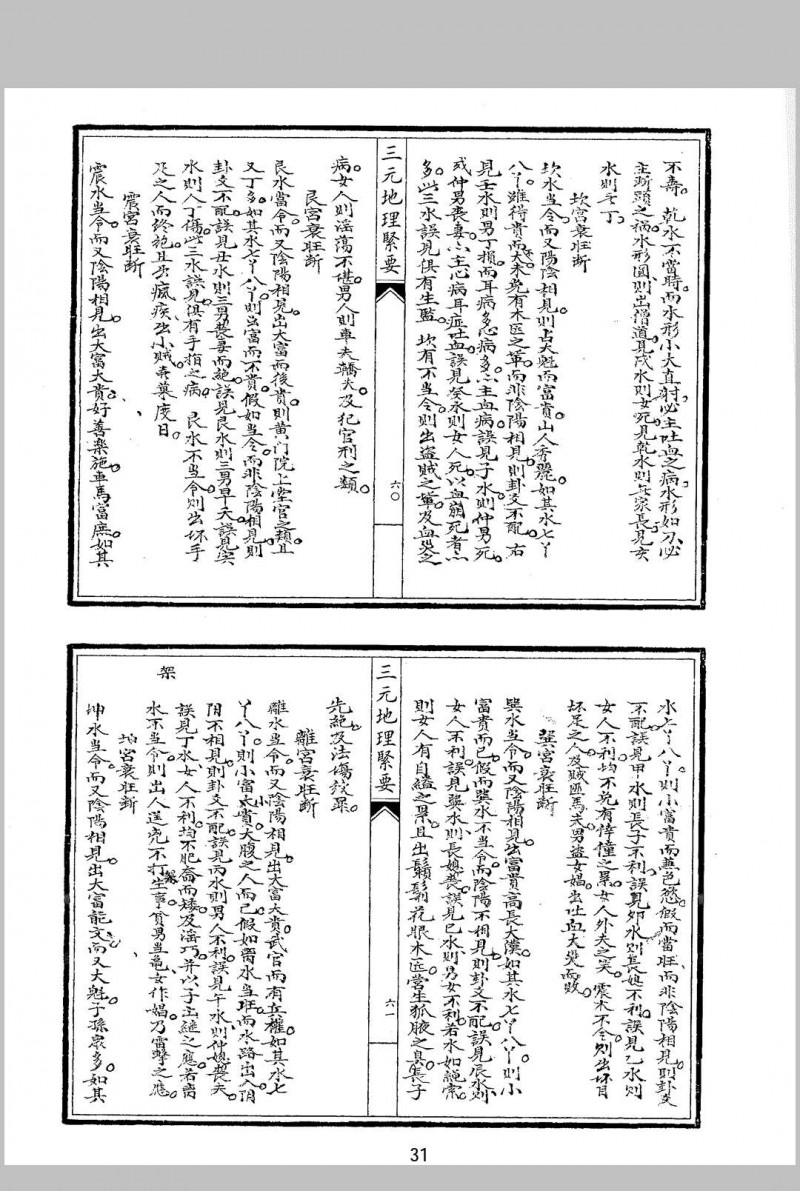 不壽。乾水不當時而水形小大直射必主吐血之病水形如刀必
主斷頭之禍水形圓則出僧道見戌水則女死見乾水則長家長見亥
水則乏丁
坎宮衰旺斷
坎水当令而又陽陰相見則占大魁而富貴山人秀麗如其水七丫
八丫雖得貴而大未免有木匠之筆而非陰陽相見則卦爻不配右
見壬水則男丁損而耳病多心病多亡主血病誤見子水則仲男死
或仲男喪妻小主心病耳症吐血誤見癸水則女人死以血崩死者
多此三水誤見俱有生監 坎有不当令則出盜賊之輩及血災之
三元地理緊要
六〇
病女人則淫蕩不堪男人則車夫轎夫及犯官刑之類
艮宮衰旺斷
艮水當令而又陰陽相見出大富而後貴則黄门院上堂官之類且
又丁多如其水七丫八丫則出富而不貴假如当令而非陰陽相見則
卦爻不配誤見丑水則三男喪妻而絕誤見艮水則三男早夭誤見寅
水則人丁傷此三水誤見俱有手指之病 艮水不当令則出坏手
足之人而終施且出瘋疾出小賊弃業废日
震宮衰旺斷
震水当令而又陰陽相見出大富大貴好善樂施車馬富庶如其
水七丫八丫則小富貴而無色慾假而當旺而非陰陽相見則卦爻
不配誤見甲水則長子不利誤見卯水則長媳不利誤見乙水則
女人不利均不免有悻憧之累女人外夫之笑 震水不令則出坏目
坏足之人及賊匪馬夫男盜女娼出吐血大災而敗
巽宮衰旺斷
巽水当令而又陰陽相見出富貴高長大漢如其水七丫八丫則小
富貴而已假而巽水不当令而陰陽不相見則卦爻不配誤見辰水則
女人不利誤見巽水則長媳喪誤見巳水則男女不利若水如繩索
則女人有自縊之累且出鬍鬚花眼木匠营生狐腋之臭長子
三元地理緊要
六一
先絕及法傷残累
離宮衰旺斷
離水当令而又陰陽相見出大富大貴武官而有兵權如其水七
丫八丫則小富小貴大腹之人而已假如离水当旺而水路出入阴
阳不相見則卦爻不配誤見丙水則男人不利誤見午水則仲媳喪夫
誤見丁水女人不利均不肥龠而矮及淫巧并以子立継之應若离
水不当令則出人逞兇不打生事貧男当龟女作娼乃雷擊之應
架
坤宮衰旺斷
坤水当令而又陰陽相見出大富能文而又大魁子孫眾多如其
31